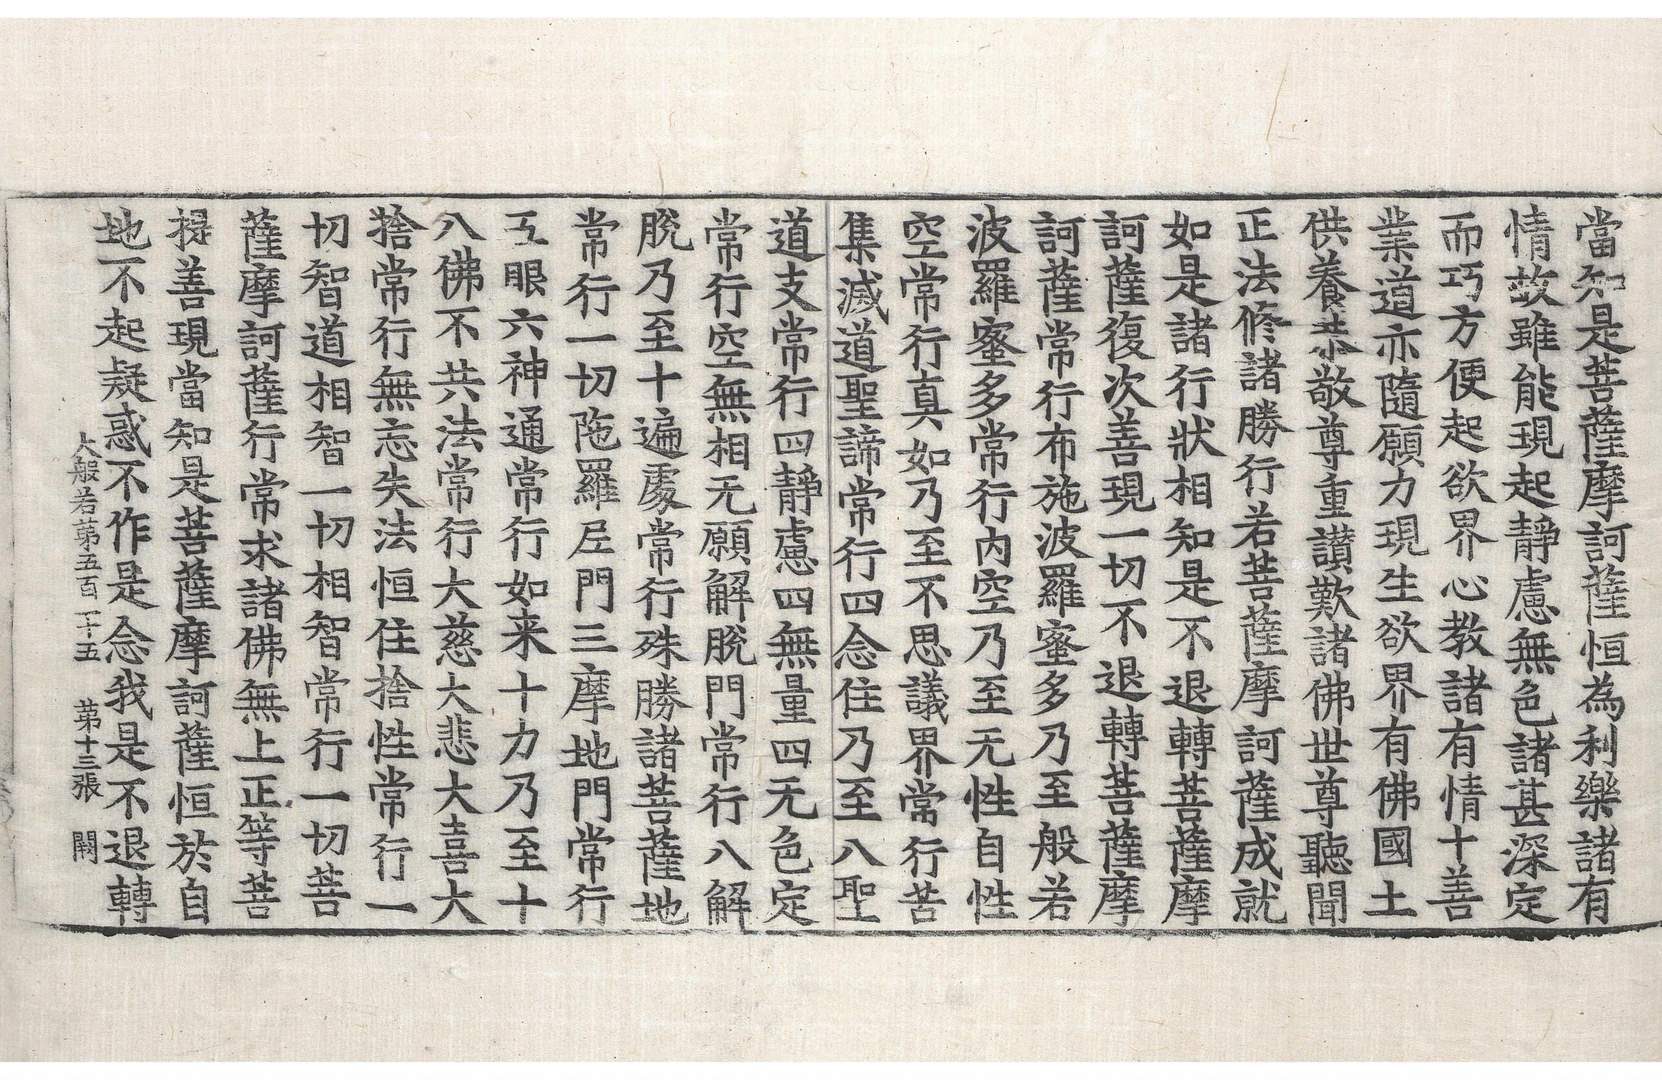 當知是菩薩摩訶薩恒為利樂諸有
情故雖能現起靜慮無色諸甚深定
而巧方便起欲界心教諸有情十善
業道亦隨願力現生欲界有佛國土
供養恭敬尊重讚歎諸佛世尊聽聞
正法修諸勝行若菩薩摩訶薩成就
如是諸行狀相知是不退轉菩薩摩
訶薩復次善現一切不退轉菩薩摩
訶薩常行布施波羅蜜多乃至般若
波羅蜜多常行內空乃至无性自性
空常行真如乃至不思議界常行苦
集滅道聖諦常行四念住乃至八聖
道支常行四靜慮四無量四无色定
常行空無相无願解脫門常行八解
脫乃至十遍處常行殊勝諸菩薩地
常行一切陁羅尼門三摩地門常行
五眼六神通常行如来十力乃至十
八佛不共法常行大慈大悲大喜大
捨常行無忘失法恒住捨性常行一
切智道相智一切相智常行一切菩
薩摩訶薩行常求諸佛無上正等菩
提善現當知是菩薩摩訶薩恒於自
地不起疑惑不作是念我是不退轉
大般若第五百一十五 第十三張 闕